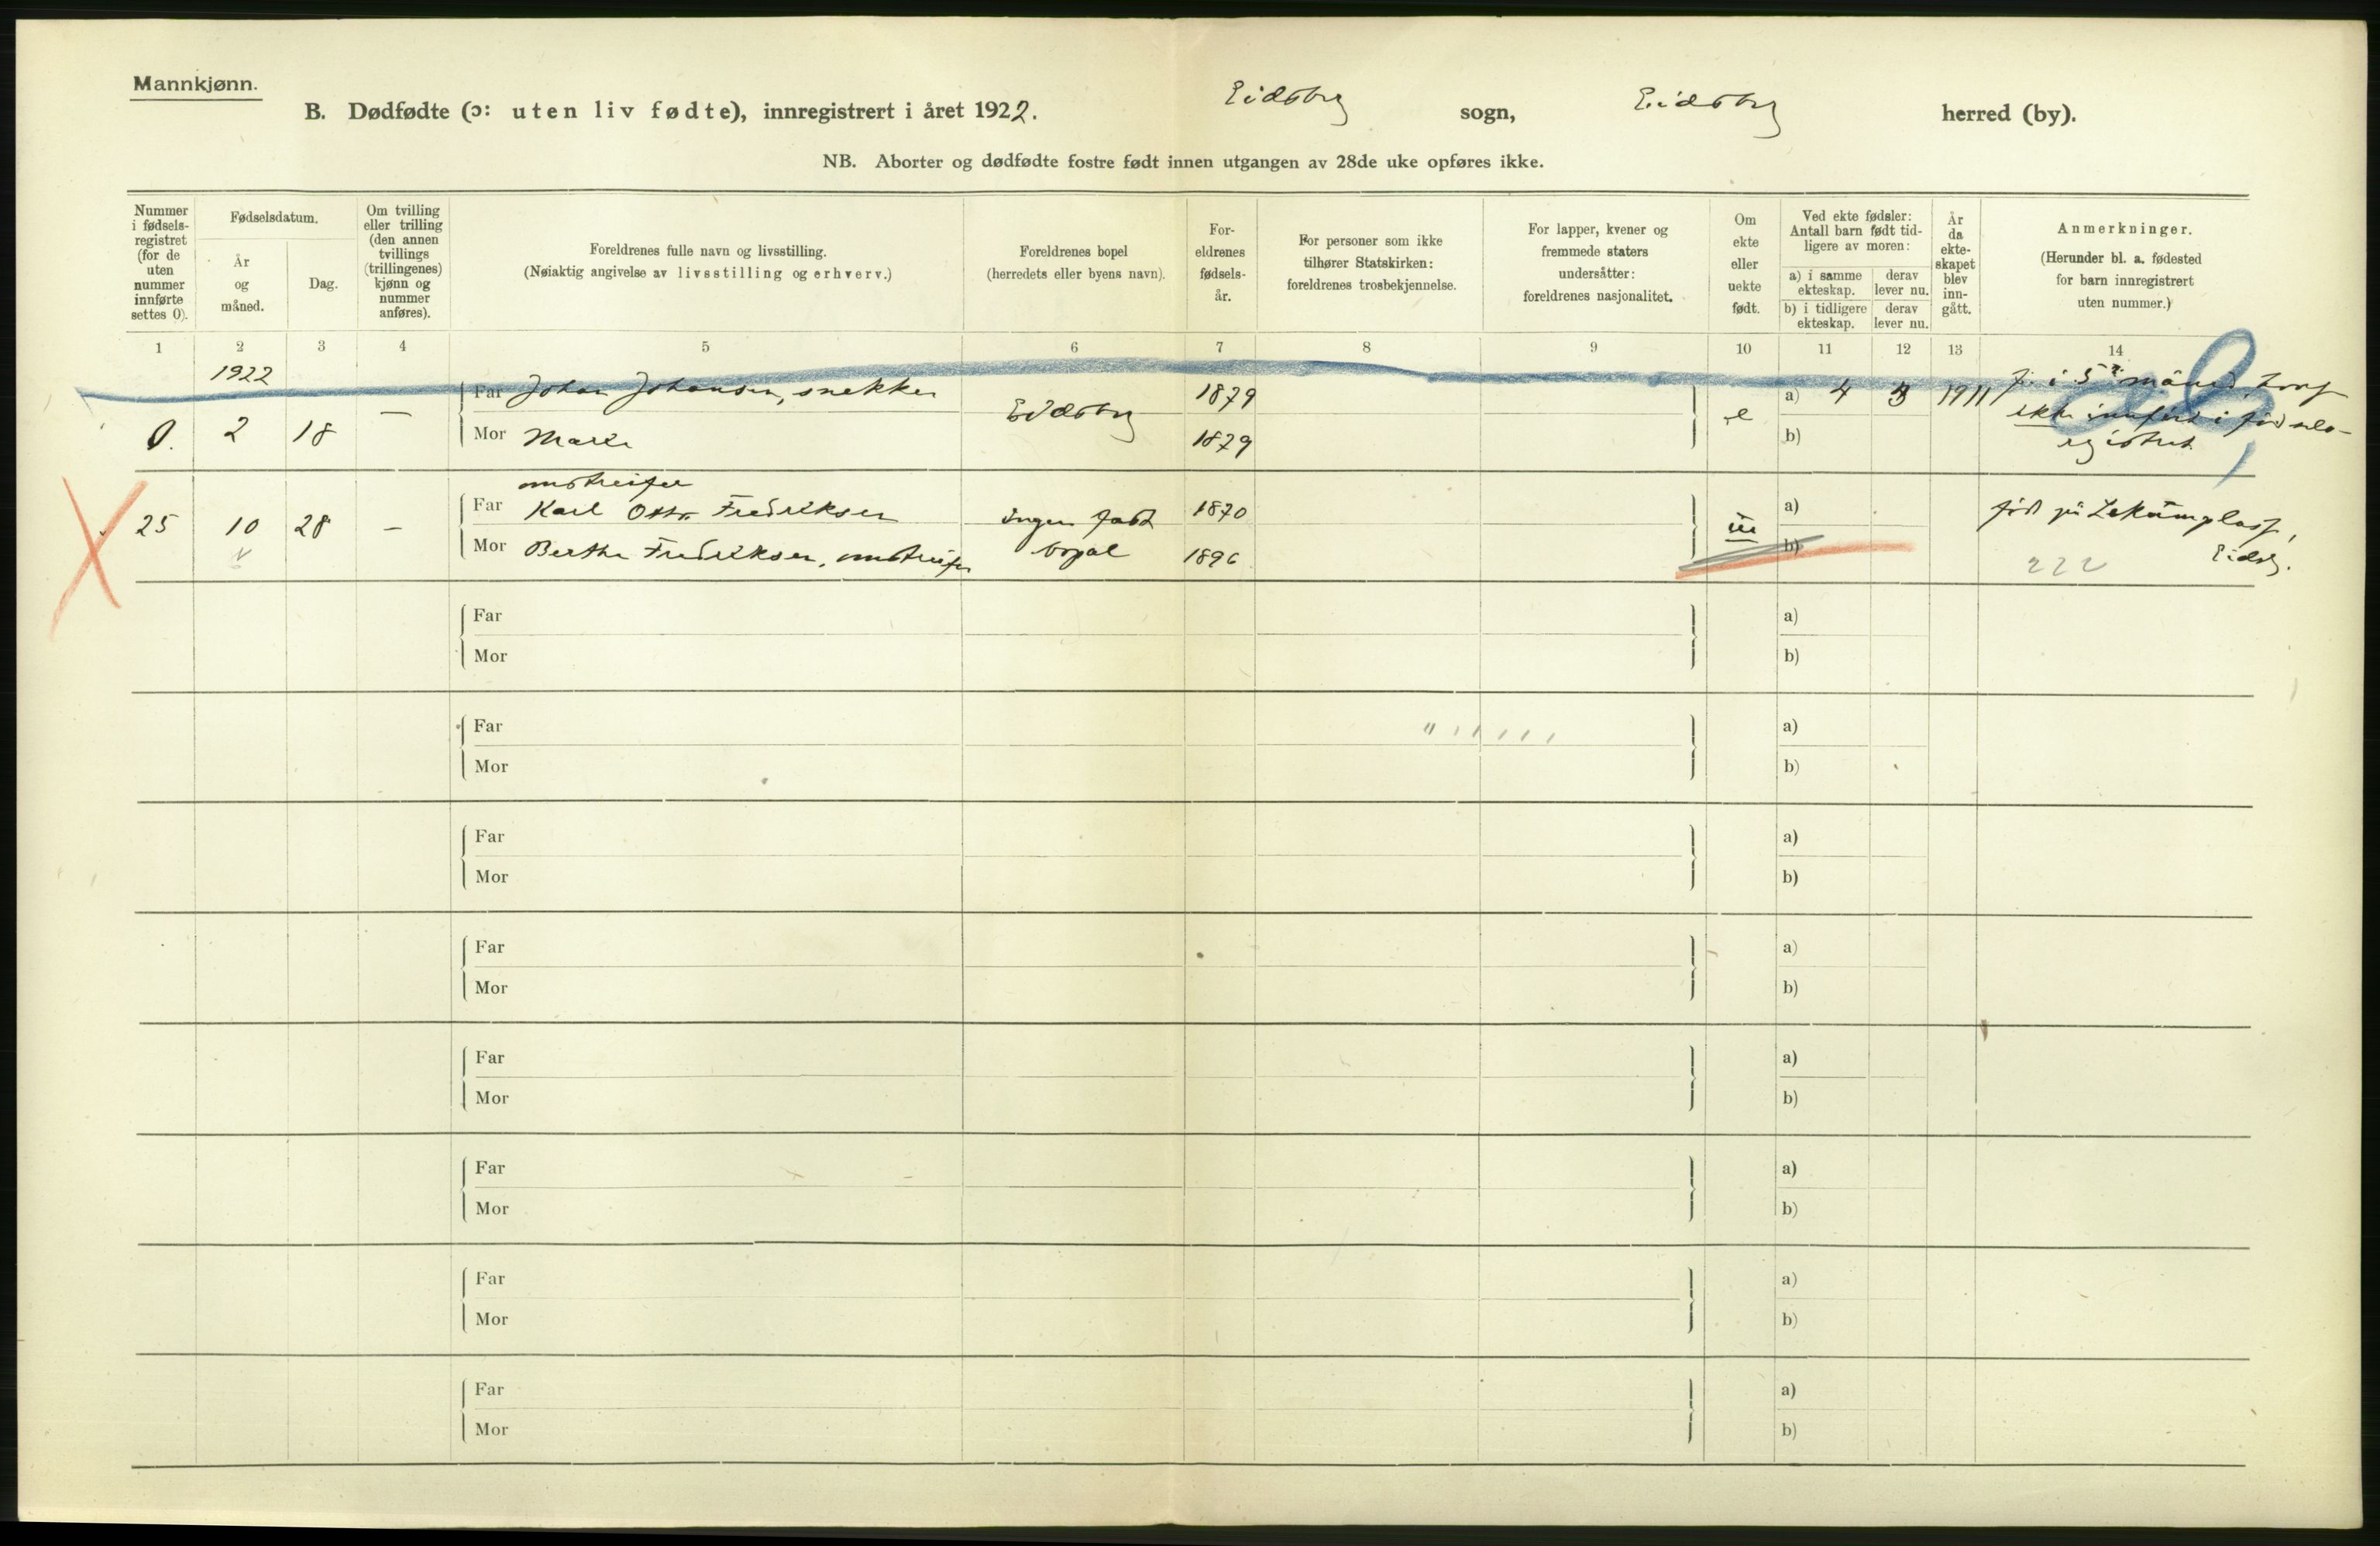 Mannkjønn.
B. Dødfødte (ɔ: uten liv fødte), innregistrert i året 1922. Eidsberg sogn, Eidsberg herred (by).
NB. Aborter og dødfødte fostre født innen utgangen av 28de uke opføres ikke.
Nummer i fødsels-registret (for de uten nummer innførte settes 0).
Fødselsdatum.
År og måned.
Dag.
Om tvilling eller trilling (den annen tvillings (trillingenes) kjønn og nummer anføres).
Foreldrenes fulle navn og livsstilling.
(Nøiaktig angivelse av livsstilling og erhverv.)
Foreldrenes bopel
(herredets eller byens navn).
For-eldrenes fødsels-år.
For personer som ikke tilhører Statskirken: foreldrenes trosbekjennelse.
For lapper, kvener og fremmede staters undersåtter: foreldrenes nasjonalitet.
Om ekte eller uekte født.
Ved ekte fødsler: Antall barn født tid-ligere av moren:
a) i samme ekteskap. derav lever nu.
b) i tidligere ekteskap. derav lever nu.
År da ekte-skapet blev inn-gått.
Anmerkninger.
(Herunder bl. a. fødested for barn innregistrert uten nummer.)
1 2 3 4 5 6 7 8 9 10 11 12 13 14
1922
Far Johan Johansen, snekker 1879 a) 4 3 1911 f. i 5te måned,
0. 2 18 — Eidsberg e ikke innført i fødsels-
Mor Marie 1879 b) registret.
omstreifer
Far Karl Otto Fredriksen ingen fast 1870 a) född på Lekumplass,
25 10 28 — ue
Mor Berthe Fredriksen, omstreifer bopæl 1896 b) 222 Eidsbg.
Far a)
Mor b)
Far a)
Mor b)
Far a)
Mor b)
Far a)
Mor b)
Far a)
Mor b)
Far a)
Mor b)
Far a)
Mor b)
Far a)
Mor b)